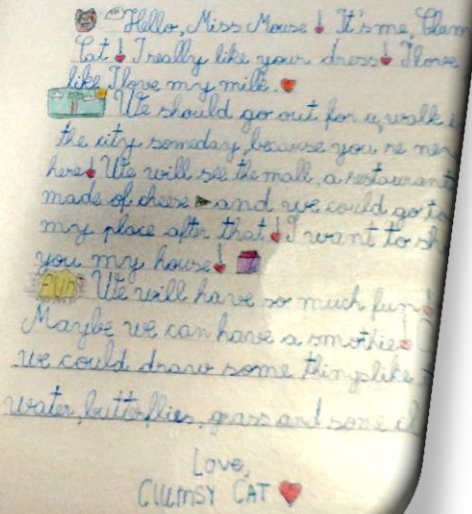 Hello, Miss Mouse! It's me, Clum
Cat! I really like your dress! I love
like I love my milk.
We should go out for a walk i
the city someday, because you're ne
here! We will see the mall, a restaurant
made of cheese and we could go to
my place after that! I want to sh
you my house!
FUN! We will have so much fun!
Maybe we can have a smothie!
we could draw some things like
water, butterflies, grass and some cl
Love,
CLUMSY CAT